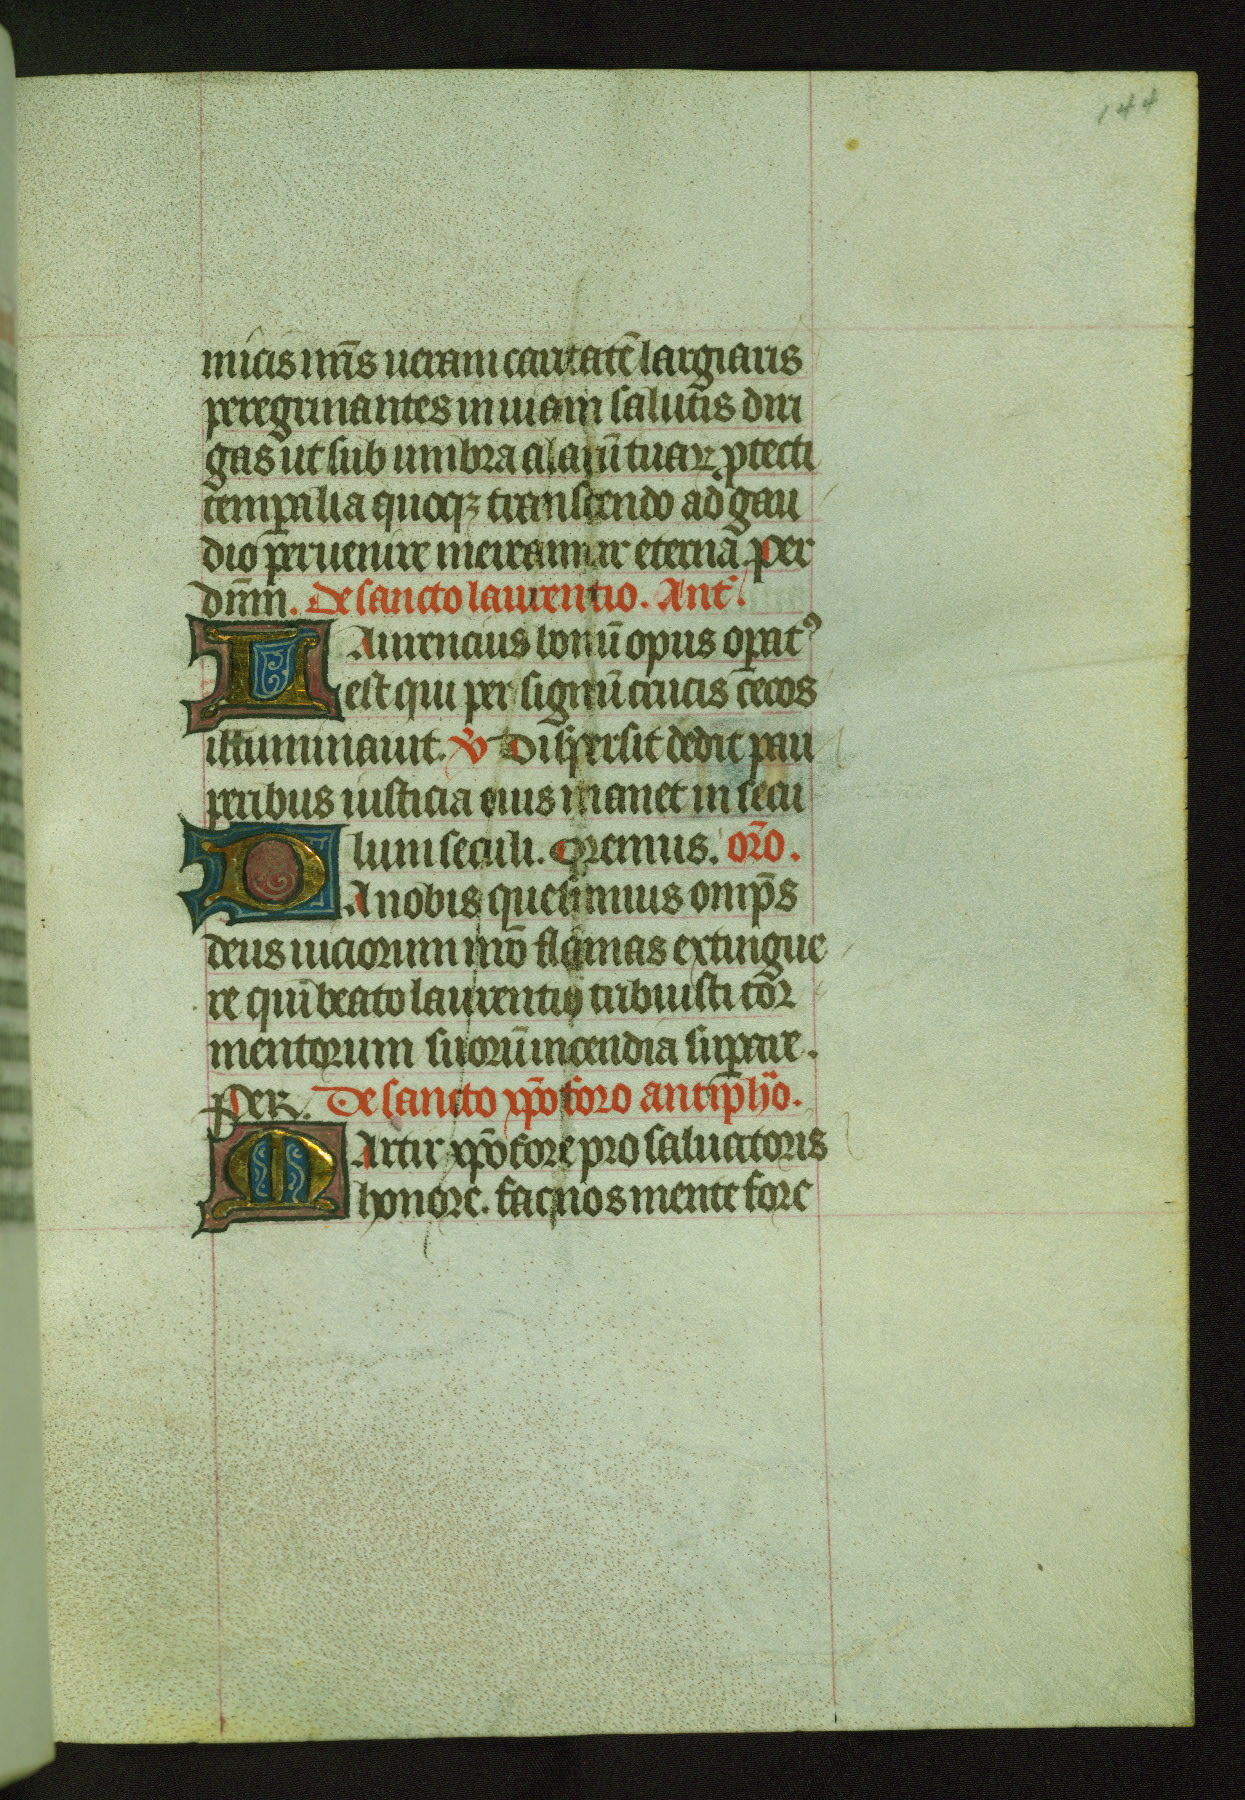 144
micis nr̄is ueram caritatē largiaris
peregrinantes in uiam salutis diri
gas ut sub umbra alarū tuaꝝ ꝓtecti
temꝑalia quoqꝫ transcendo ad gau
dio peruenire mereamur eternā. Per
dn̄m. De sancto laurentio. Ant.
Laurencius bonū opus oꝑatꝰ
est qui per signū crucis cecos
illuminauit. ℣ Dispersit dedit pau
peribus iusticia eius manet in secu
lum seculi. Oremus. or̄o.
DA nobis quesumus omp̄s
deus uiciorum nr̄o flāmas extingue
re qui beato laurentio tribuisti tor
mentorum suorū incendia suꝑare.
Per. De sancto xp̄oforo antiph̄o.
Martir xp̄ofore pro saluatoris
honore. fac nos mente fore